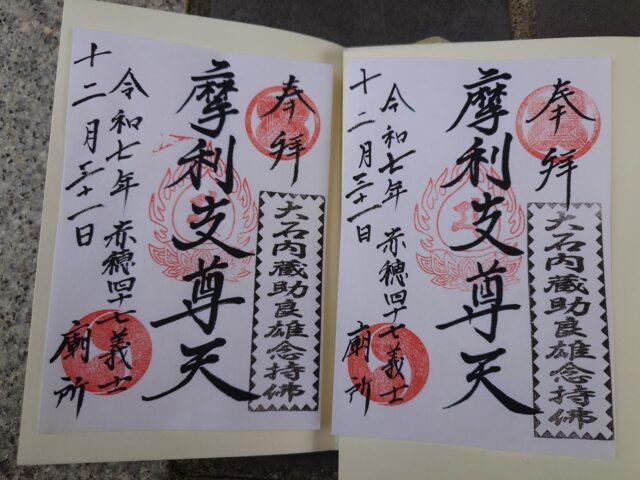 奉拝
大石内蔵助良雄念持佛
摩利支尊天
赤穂四十七義士
廟所
令和七年
十二月三十一日
奉拝
大石内蔵助良雄念持佛
摩利支尊天
赤穂四十七義士
廟所
令和七年
十二月三十一日